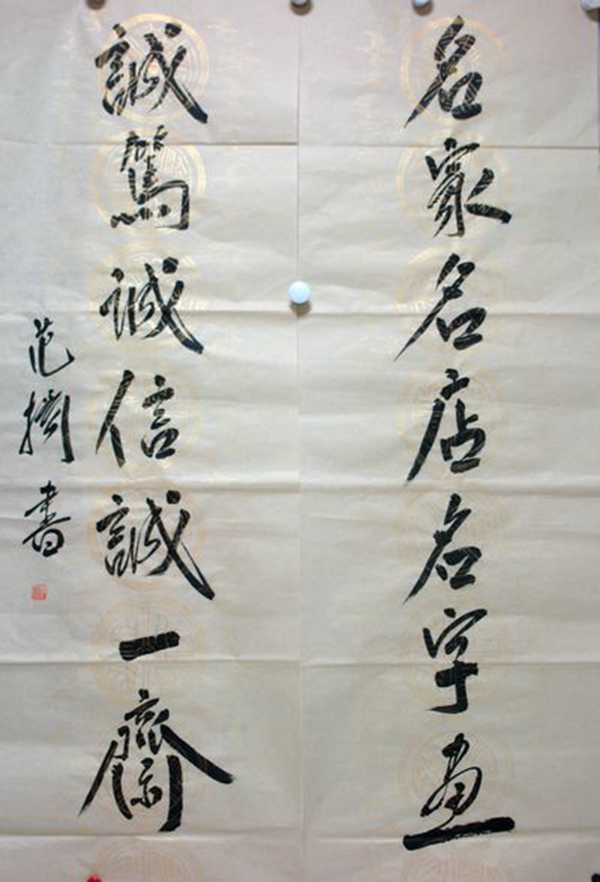 名家名店名字画
誠篤誠信誠一齋
范擕書